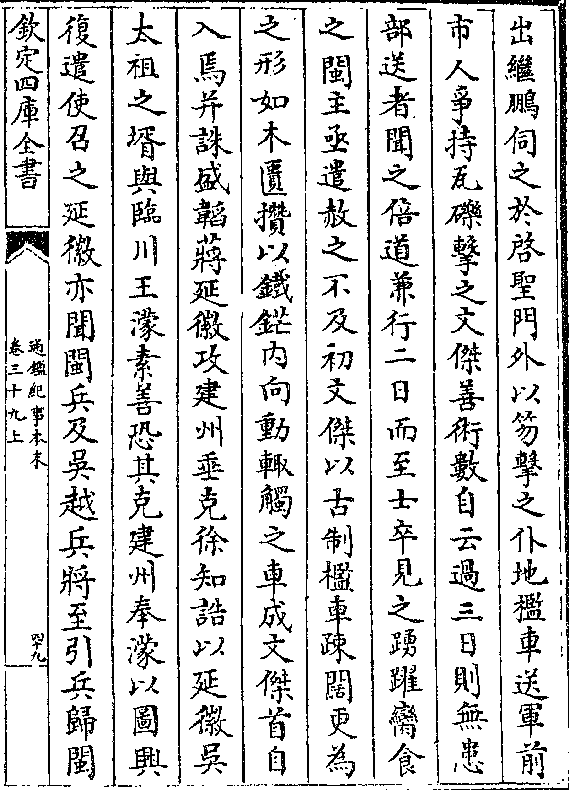 出繼鵬伺之於啓聖門外以笏擊之仆地檻車送軍前
市人爭持瓦礫擊之文傑善術數自云過三日則無患
部送者聞之倍道兼行二日而至士卒見之踴躍臠食
之閩主亟遣赦之不及初文傑以古制檻車疎闊更為
之形如木匱攢以鐵鋩内向動輒觸之車成文傑首自
入焉并誅盛韜蔣延徽攻建州垂克徐知誥以延徽吳
太祖之壻與臨川王濛素善恐其克建州奉濛以圖興
復遣使召之延徽亦聞閩兵及吳越兵將至引兵歸閩
欽定四庫全書
通鑑紀事本末
卷三十九上
四十九